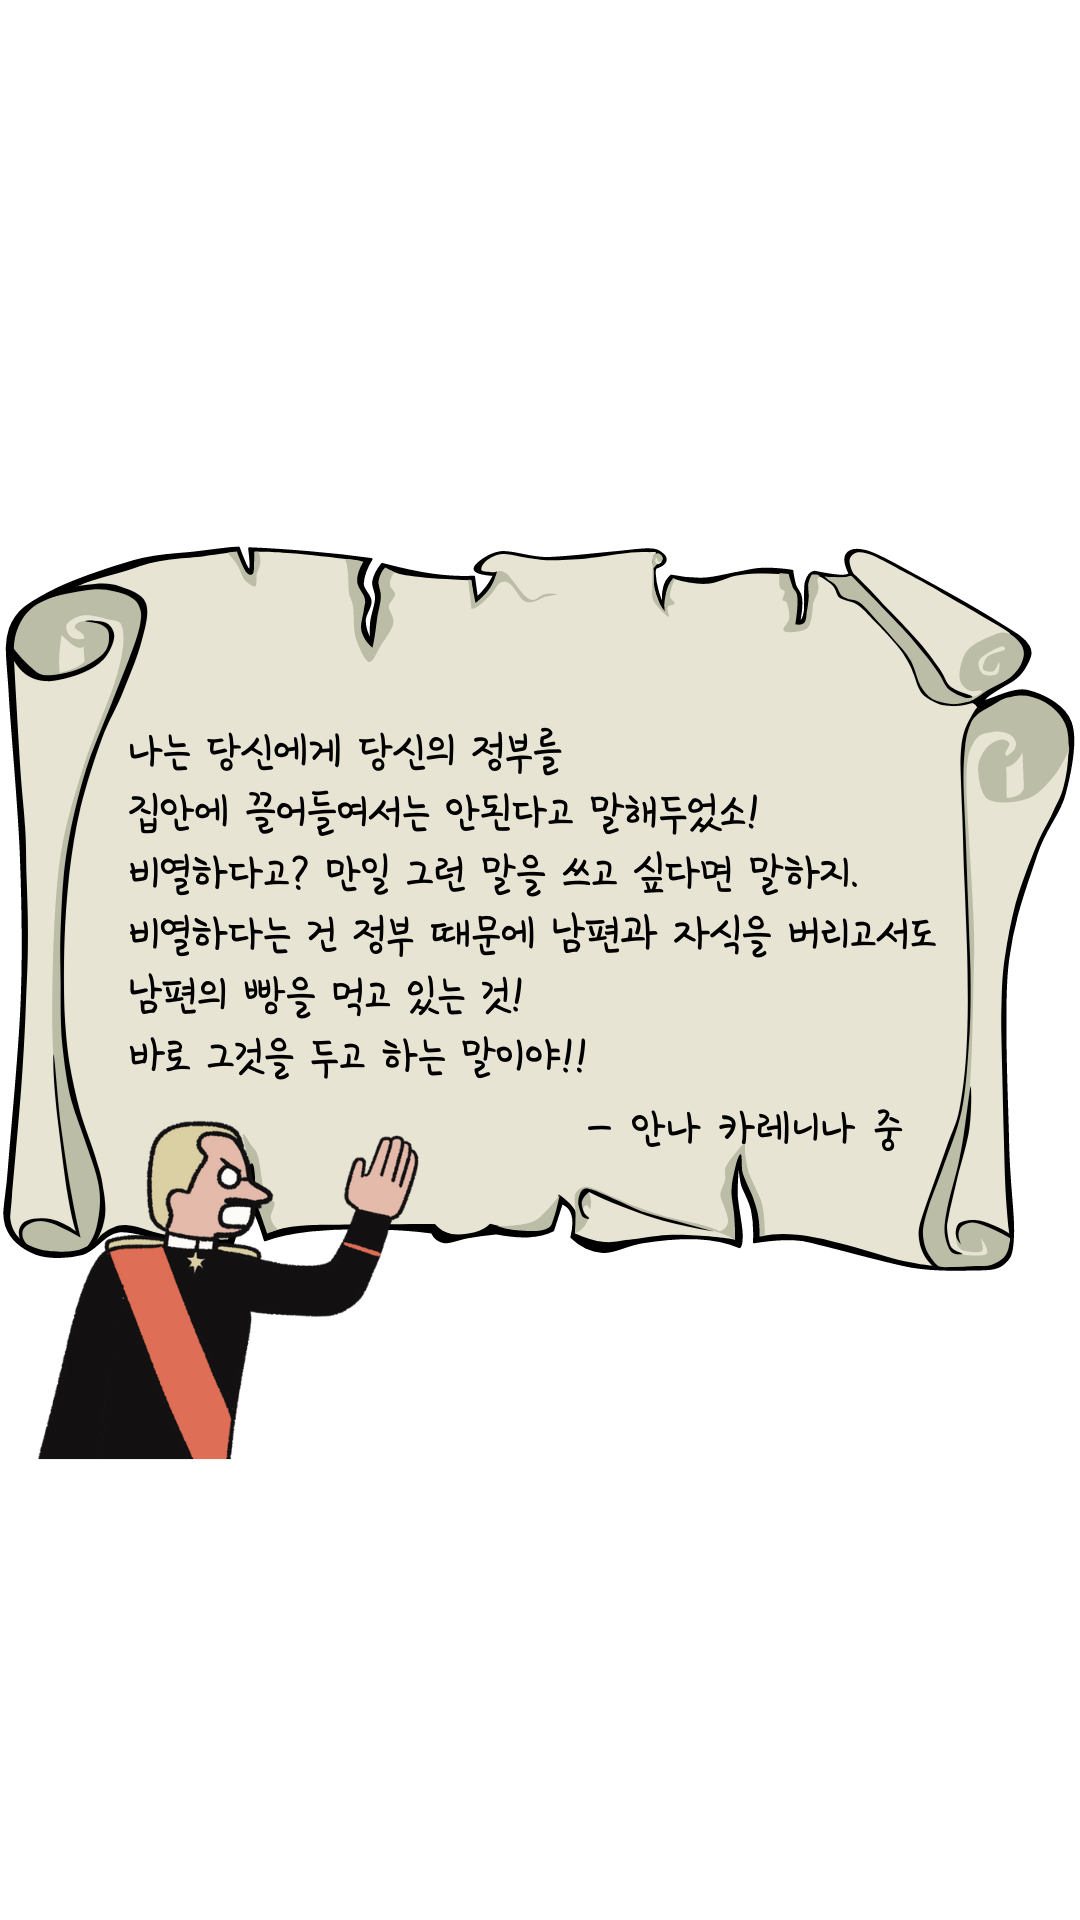 나는 당신에게 당신의 정부를
집안에 끌어들여서는 안된다고 말해두었소!
비열하다고? 만일 그런 말을 쓰고 싶다면 말하지.
비열하다는 건 정부 때문에 남편과 자식을 버리고서도
남편의 빵을 먹고 있는 것!
바로 그것을 두고 하는 말이야!!
- 안나 카레니나 중